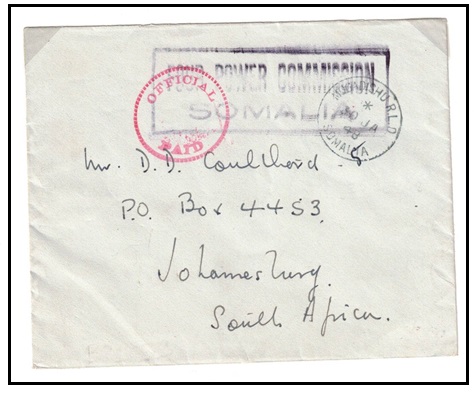 FOUR POWER COMMISSION
SOMALIA
OFFICIAL
PAID
R.L.O
*
JA
48
SOMALIA
Mr. D. D. Coulthard
P.O. Box 4453,
Johannesburg
South Africa.